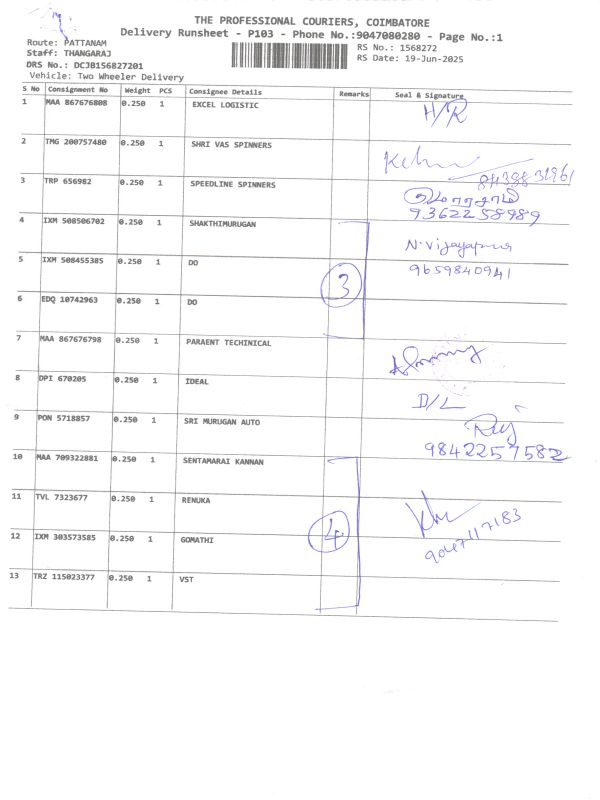 THE PROFESSIONAL COURIERS, COIMBATORE
Delivery Runsheet - P103 - Phone No.:9047080280 - Page No.:1
Route: PATTANAM
Staff: THANGARAJ
DRS No.: DCJB156827201
Vehicle: Two Wheeler Delivery
RS No.: 1568272
RS Date: 19-Jun-2025
S No Consignment No Weight PCS Consignee Details Remarks Seal & Signature
1 MAA 867676808 0.250 1 EXCEL LOGISTIC H/R
2 TMG 200757480 0.250 1 SHRI VAS SPINNERS
3 TRP 656982 0.250 1 SPEEDLINE SPINNERS
9362258989
4 IXM 508506702 0.250 1 SHAKTHIMURUGAN N. Vijayapur
5 IXM 508455385 0.250 1 DO 3 9659840941
6 EDQ 10742963 0.250 1 DO
7 MAA 867676798 0.250 1 PARAENT TECHINICAL
8 DPI 670205 0.250 1 IDEAL D/L
9 PON 5718857 0.250 1 SRI MURUGAN AUTO
9842257582
10 MAA 709322881 0.250 1 SENTAMARAI KANNAN
11 TVL 7323677 0.250 1 RENUKA
12 IXM 303573585 0.250 1 GOMATHI 4 9047117183
13 TRZ 115023377 0.250 1 VST